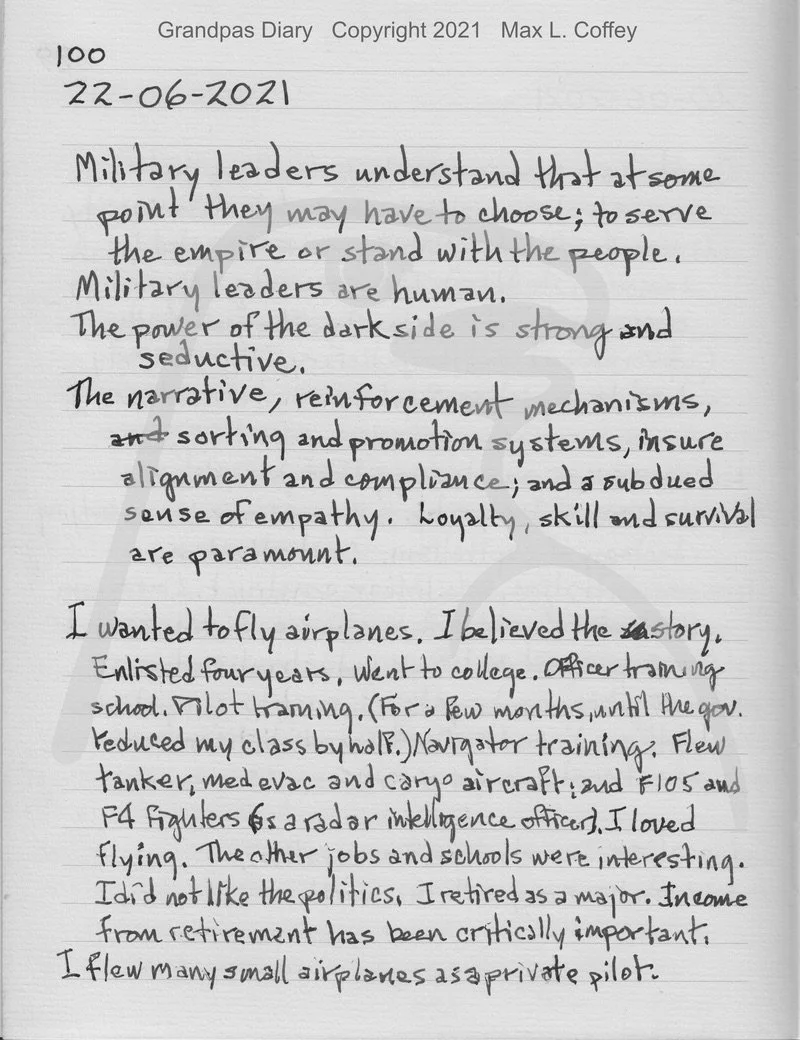 Grandpas Diary Copyright 2021 Max L. Coffey
100
22-06-2021
Military leaders understand that at some
point they may have to choose; to serve
the empire or stand with the people.
Military leaders are human.
The power of the dark side is strong and
seductive.
The narrative, reinforcement mechanisms,
and sorting and promotion systems, insure
alignment and compliance; and a subdued
sense of empathy. Loyalty, skill and survival
are paramount.
I wanted to fly airplanes. I believed the story.
Enlisted four years. Went to college. Officer training
school. Pilot training. (For a few months, until the gov.
reduced my class by half.) Navigator training. Flew
tanker, med evac and cargo aircraft; and F105 and
F4 fighters (as a radar intelligence officer). I loved
flying. The other jobs and schools were interesting.
I did not like the politics. I retired as a major. Income
from retirement has been critically important.
I flew many small airplanes as a private pilot.